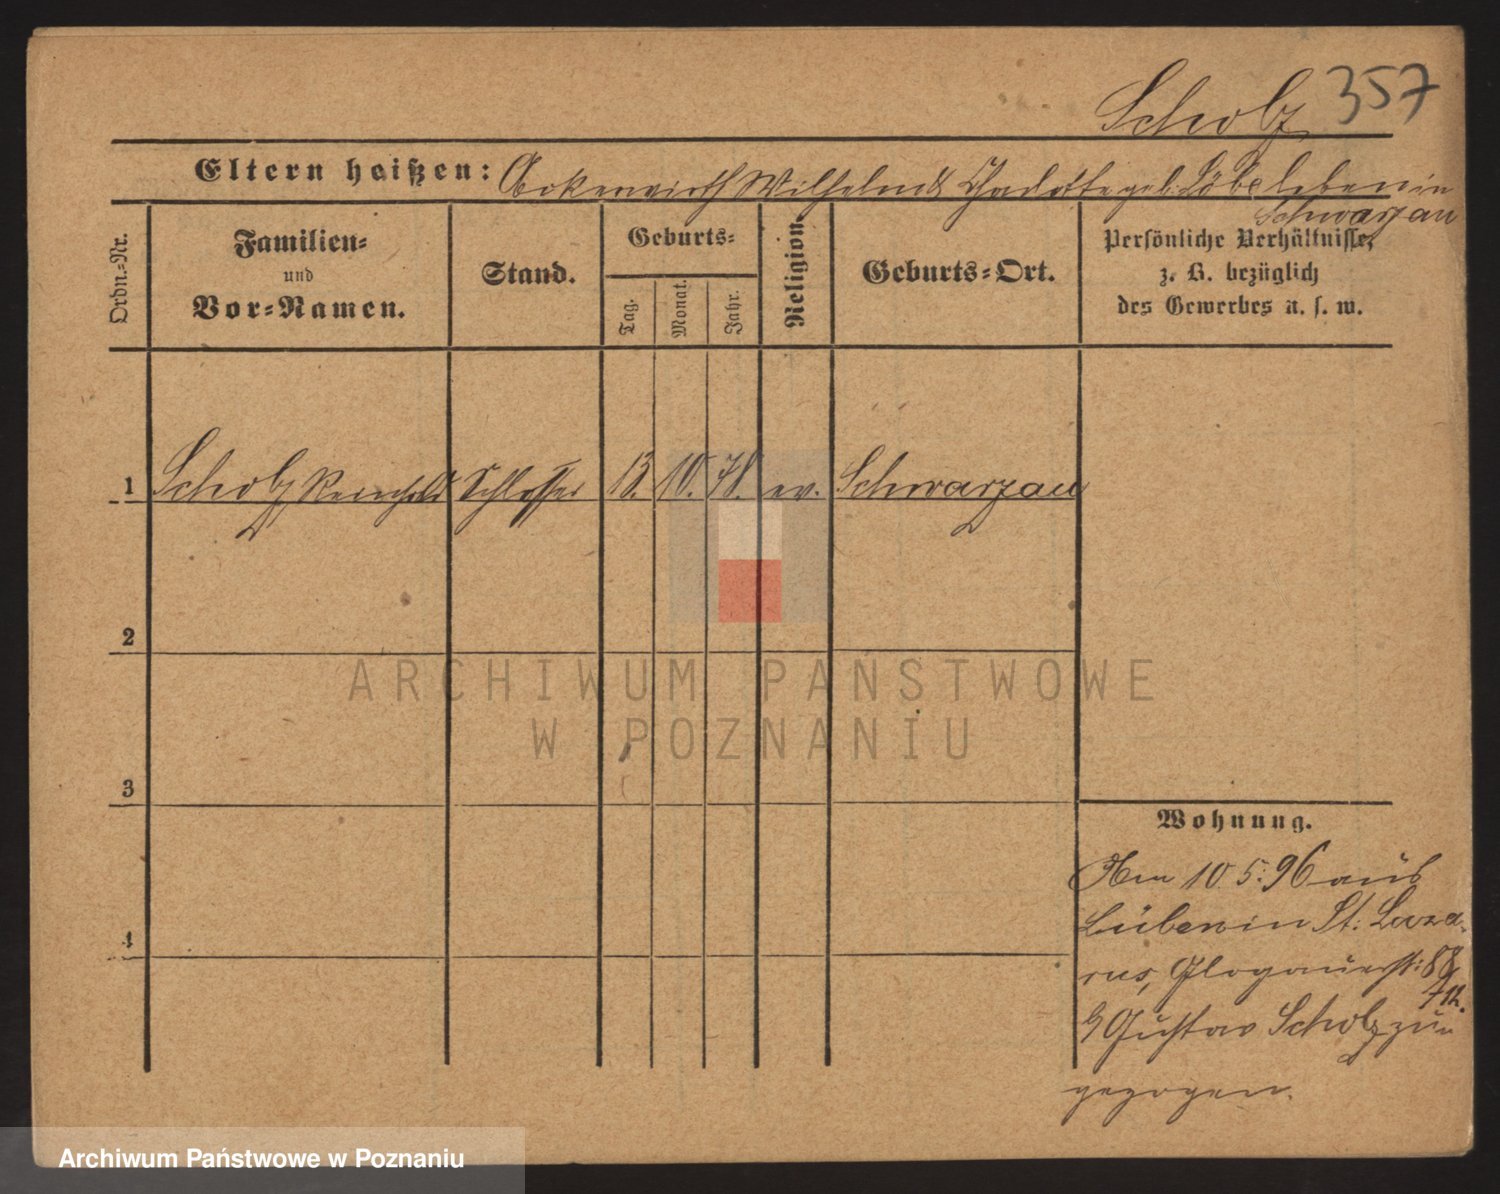 Scholz 357
Eltern heißen: Ackerwirth Wilhelm & Charlotte geb. Löbe leben in
Schwarzau
Ordn.-Nr.
Familien-
und
Vor-Namen.
Stand.
Geburts-
Tag.
Monat.
Jahr.
Religion.
Geburts-Ort.
Persönliche Verhältnisse,
z. B. bezüglich
des Gewerbes u. s. w.
1 Scholz Reinhold Schlosser 13. 10. 78. ev. Schwarzau
2
3
4
Wohnung.
Am 10. 5. 96 aus
Lüben in St. Laza-
rus, Glogauerst: 88
b/ Gustav Scholz zu
gezogen.
ARCHIWUM PAŃSTWOWE
W POZNANIU
Archiwum Państwowe w Poznaniu